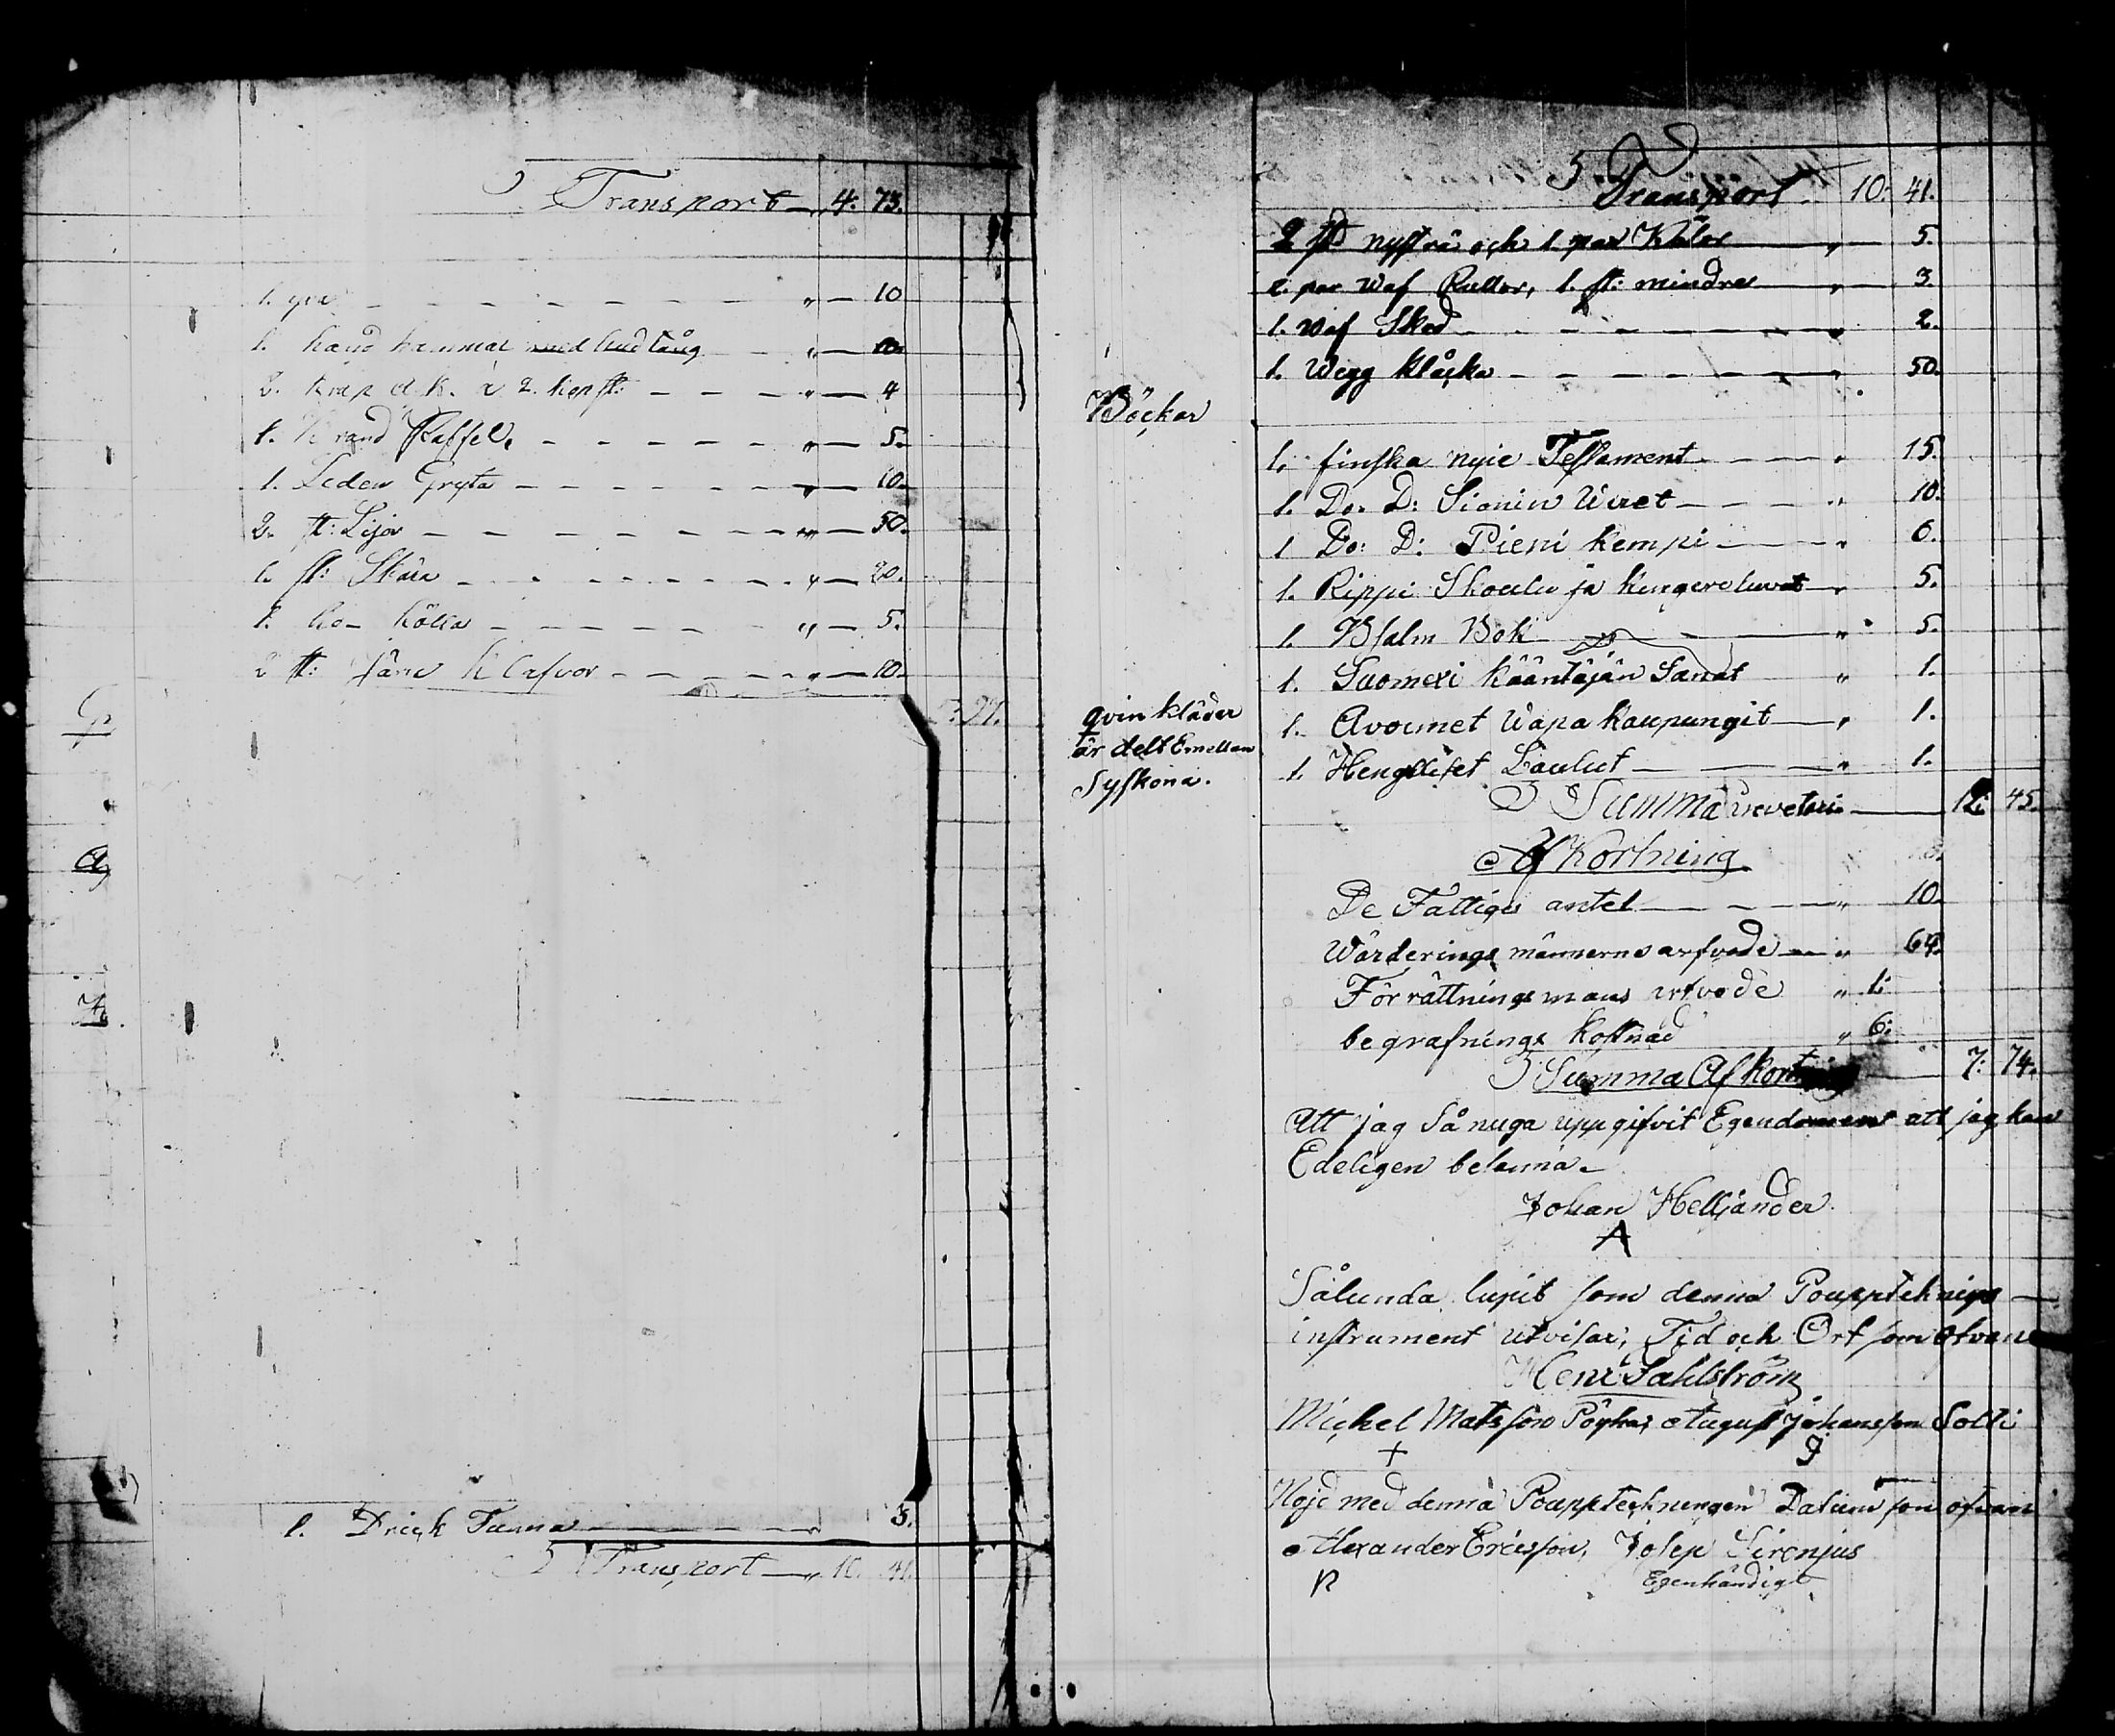 Transport 4. 73.
1. yxa " 10
1. hand hammar med hud tång " 10.
2. " 4
1. Rand Kaffel. " 5.
1. Leden Gryta " 10.
2. st: Lijor " 50.
1. st: Skära " 20.
1. " 5.
2 st: Klafvor " 10.
1. Drick Tunna " 3.
Transport " 10. 41.
Transport 10: 41.
2 st nysträ och 1. par Kålor " 5.
2. par Waf Rullor, 1. st: mindre " 3.
1. Waf Sked " 2.
1. Wegg klåcka " 50.
Böcker
1. finska nyie Testament " 15.
1. Do. D: Sionin Wiret " 10.
1 Do: D: Pieni kempi " 6.
1. Rippi Skoulu ja " 5.
1. Psalm Bok " 5.
1. Suomexi kääntäjän Sanat " 1.
qvin kläder
är delt Emellan
Syskona.
1. Avoimet Wapa kaupungit " 1.
1. Hengeliset Laulut " 1.
Summa inveteri 12: 45.
Afkortning
De Fattiges antel " 10.
Wärderings männerns arfvode " 64.
Förrättnings mans arfvode " 1:
begrafnings kostnad " 6:
Summa Afkortning 7: 74.
Att jag Så nuga uppgifvit Egendomen att jag kan
Edeligen betanna.
Johan Helljander
A
Sålunda lupit som denna Pouppteknigs
instrument utvisar, Tid och Ort som ofvan
Henr Sahlström
Michel Matsson Pöyhä, August Johansson Solti
+
Nöjd med denna Pouppteckningen Datum som ofvan
Alexander Ericsson, Josep Sirenjus
Egenhändigt